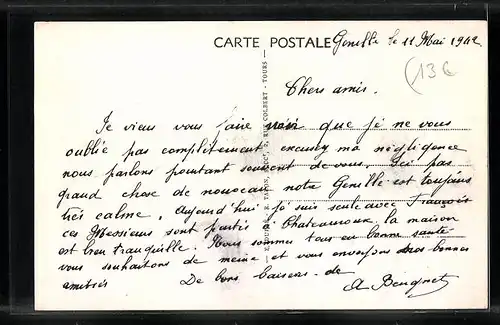 CARTE POSTALE
Genillé le 11 Mai 1942
(136
Chers amis.
Je viens vous faire voir que je ne vous
oublie pas complitement excusez ma négligence
nous parlons pourtant souvent de vous. Ici pas
grand chose de nouveau notre Genillé est toujours
très calme, Aujourd'hui je suis seule avec Francois
ces Messieurs sont partis à Chateauroux la maison
est bien tranquille. Nous sommes tous en bonne santé
vous souhaitons de meme et vous envoyons nos bonnes
amitiés De bons baisers de
A Beugnet
RUE COLBERT - TOURS